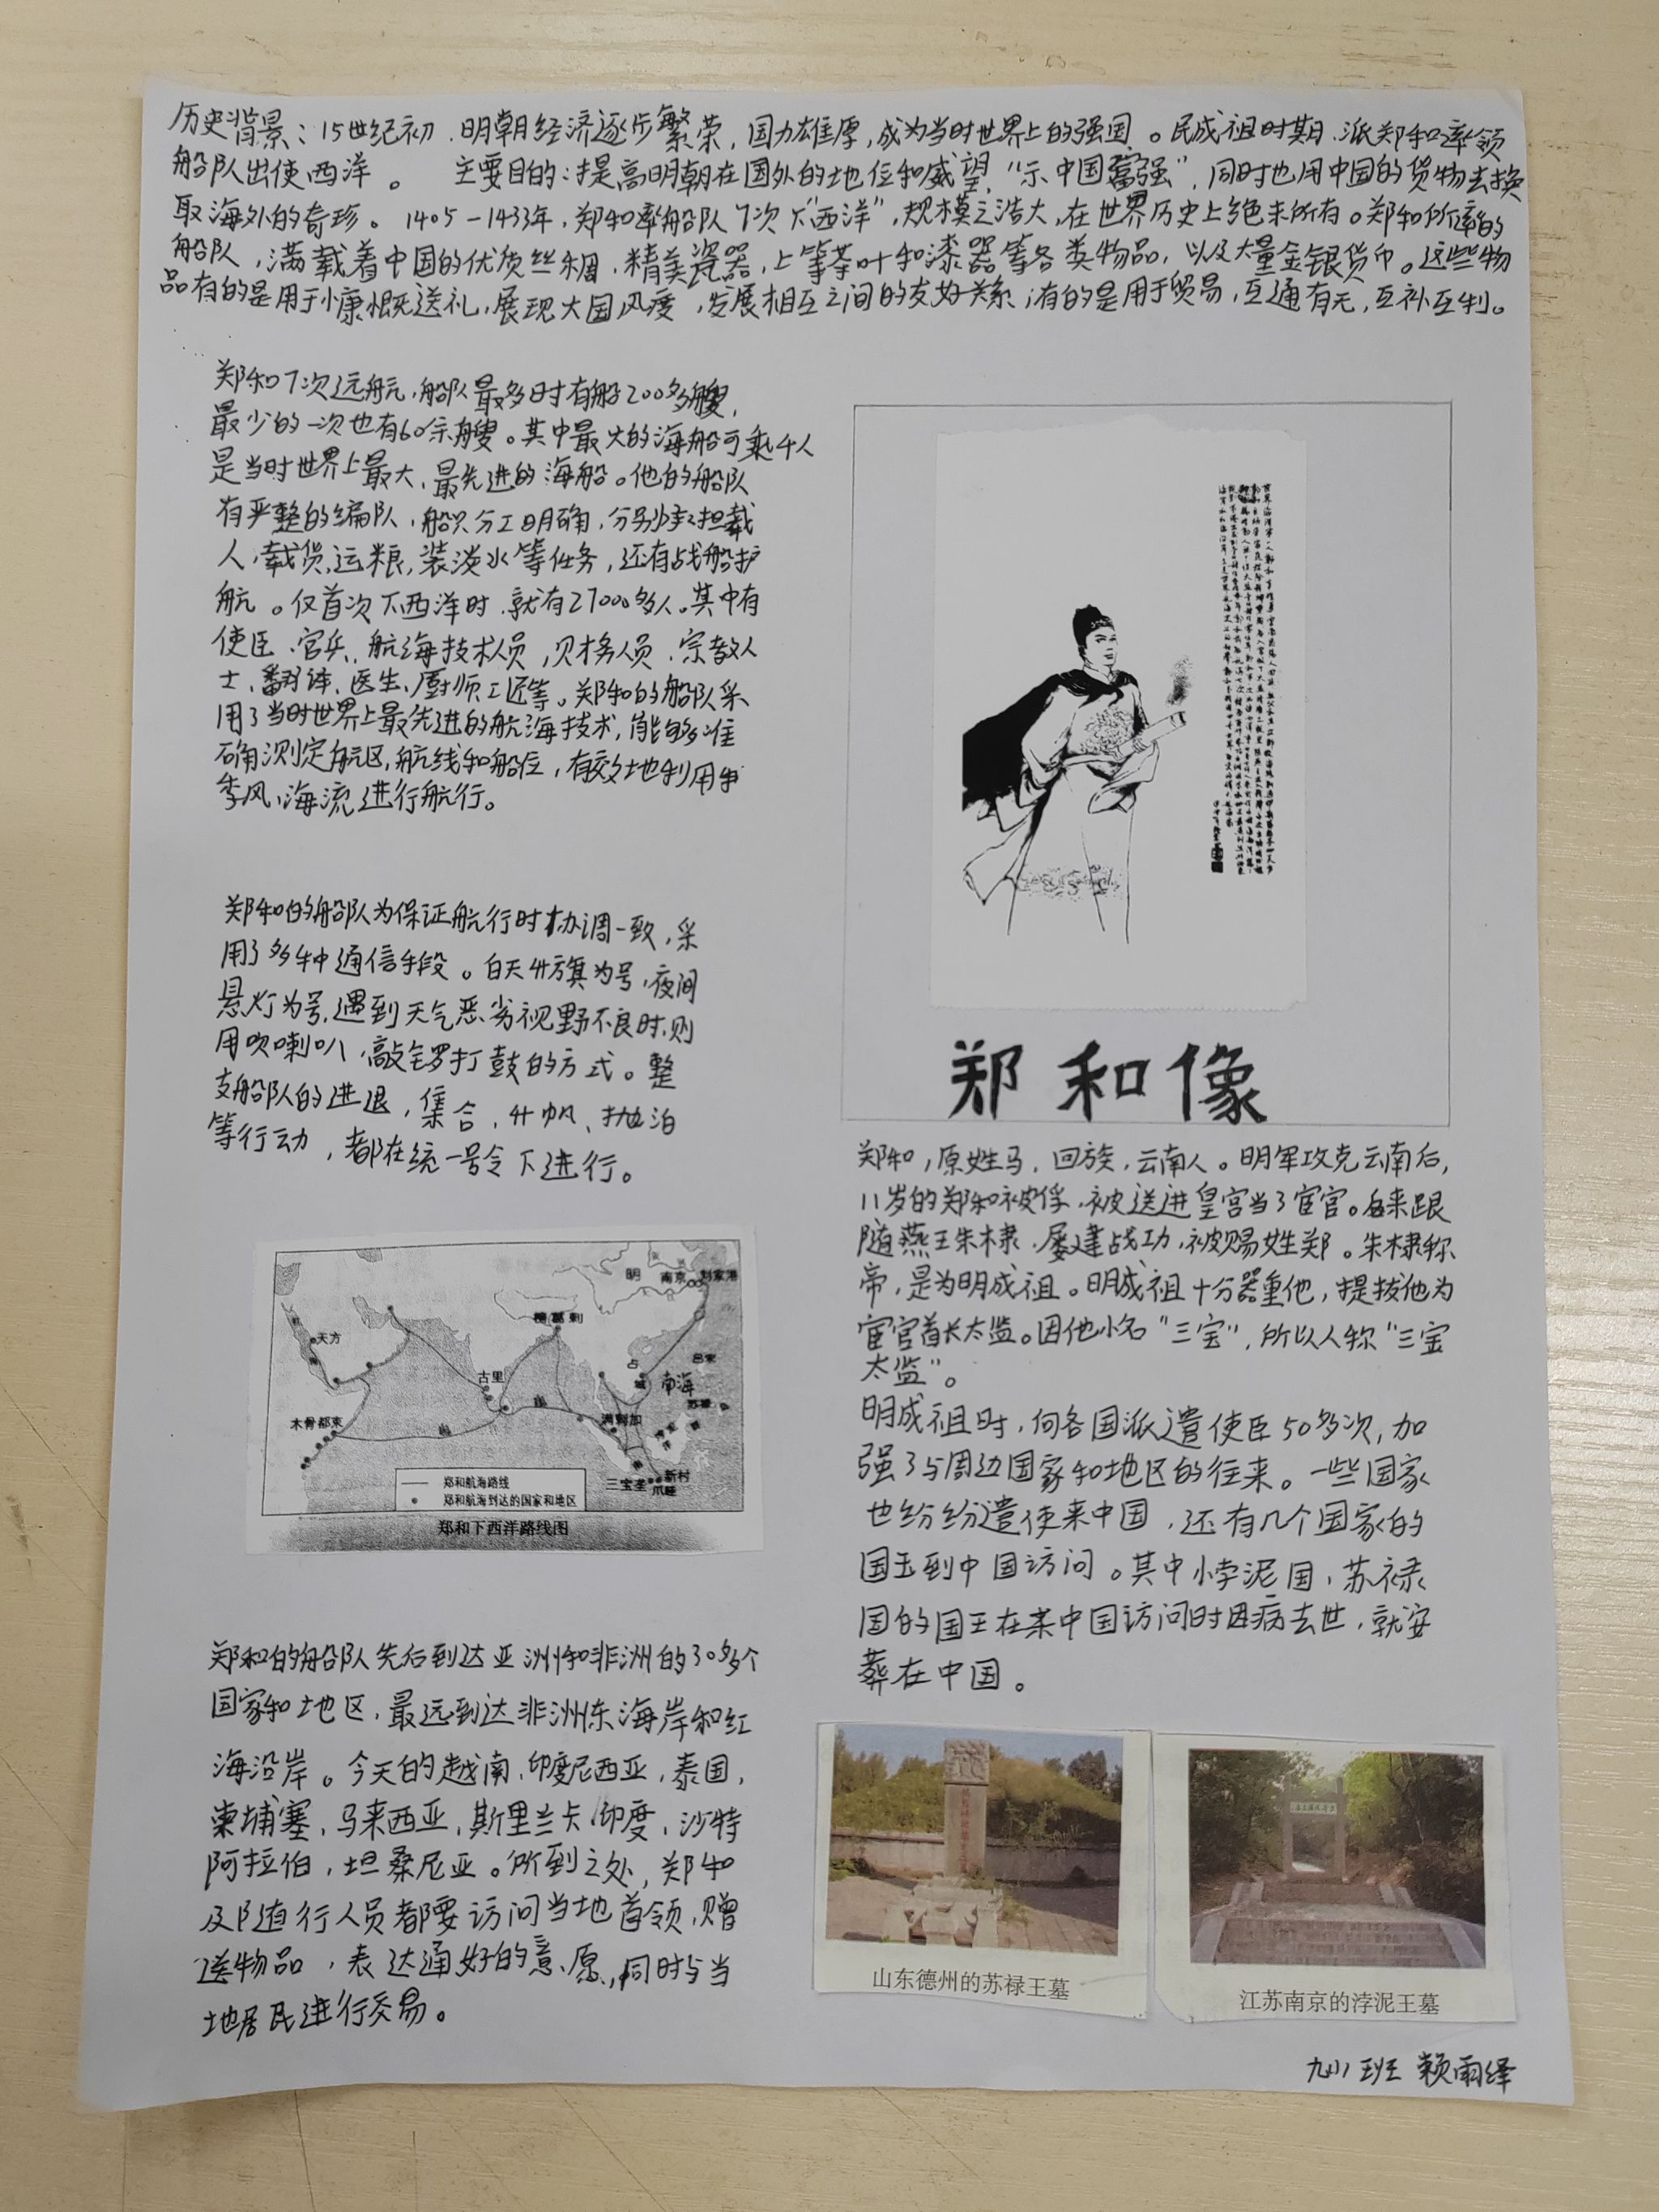 历史背景：15世纪初，明朝经济逐步繁荣，国力雄厚，成为当时世界上的强国。民成祖时期，派郑和率领
船队出使西洋。 主要目的：提高明朝在国外的地位和威望，“示中国富强”，同时也用中国的货物去换
取海外的奇珍。1405-1433年，郑和率船队7次下“西洋”，规模之浩大，在世界历史上绝未所有。郑和所率的
船队，满载着中国的优质丝绸，精美瓷器，上等茶叶和漆器等各类物品，以及大量金银货币。这些物
品有的是用于慷慨送礼，展现大国风度，发展相互之间的友好关系；有的是用于贸易，互通有无，互补互利。
郑和7次远航，船队最多时有船200多艘，
最少的一次也有60余艘。其中最大的海船可乘千人
是当时世界上最大、最先进的海船。他的船队
有严整的编队，船只分工明确，分别承担载
人，载货，运粮，装淡水等任务，还有战船护
航。仅首次下西洋时，就有27000多人。其中有
使臣、官兵、航海技术人员，财务人员、宗教人
士、翻译、医生、厨师工匠等。郑和的船队采
用了当时世界上最先进的航海技术，能够准
确测定航区，航线和船位，有效地利用
季风、海流进行航行。
郑和的船队为保证航行时协调一致，采
用了多种通信手段。白天升旗为号，夜间
悬灯为号，遇到天气恶劣视野不良时，则
用吹喇叭、敲锣打鼓的方式。整
支船队的进退，集合、升帆、抛泊
等行动，都在统一号令下进行。
明 南京 刘家港
榜葛剌
天方
古里
占城
南海
吕宋
苏禄
木骨都束
满剌加
三宝垄
新村
爪哇
郑和航海路线
郑和航海到达的国家和地区
郑和下西洋路线图
郑和的船队先后到达亚洲和非洲的30多个
国家和地区，最远到达非洲东海岸和红
海沿岸。今天的越南、印度尼西亚，泰国，
柬埔寨，马来西亚，斯里兰卡、印度，沙特
阿拉伯，坦桑尼亚。所到之处，郑和
及随行人员都要访问当地首领，赠
送物品，表达通好的意愿，同时与当
地居民进行交易。
郑和像
郑和，原姓马，回族，云南人。明军攻克云南后，
11岁的郑和被俘，被送进皇宫当了宦官。后来跟
随燕王朱棣，屡建战功，被赐姓郑。朱棣称
帝，是为明成祖。明成祖十分器重他，提拔他为
宦官首长太监。因他小名“三宝”，所以人称“三宝
太监”。
明成祖时，向各国派遣使臣50多次，加
强了与周边国家和地区的往来。一些国家
也纷纷遣使来中国，还有几个国家的
国王到中国访问。其中浡泥国，苏禄
国的国王在来中国访问时因病去世，就安
葬在中国。
山东德州的苏禄王墓
江苏南京的浡泥王墓
九(1)班 赖雨绎